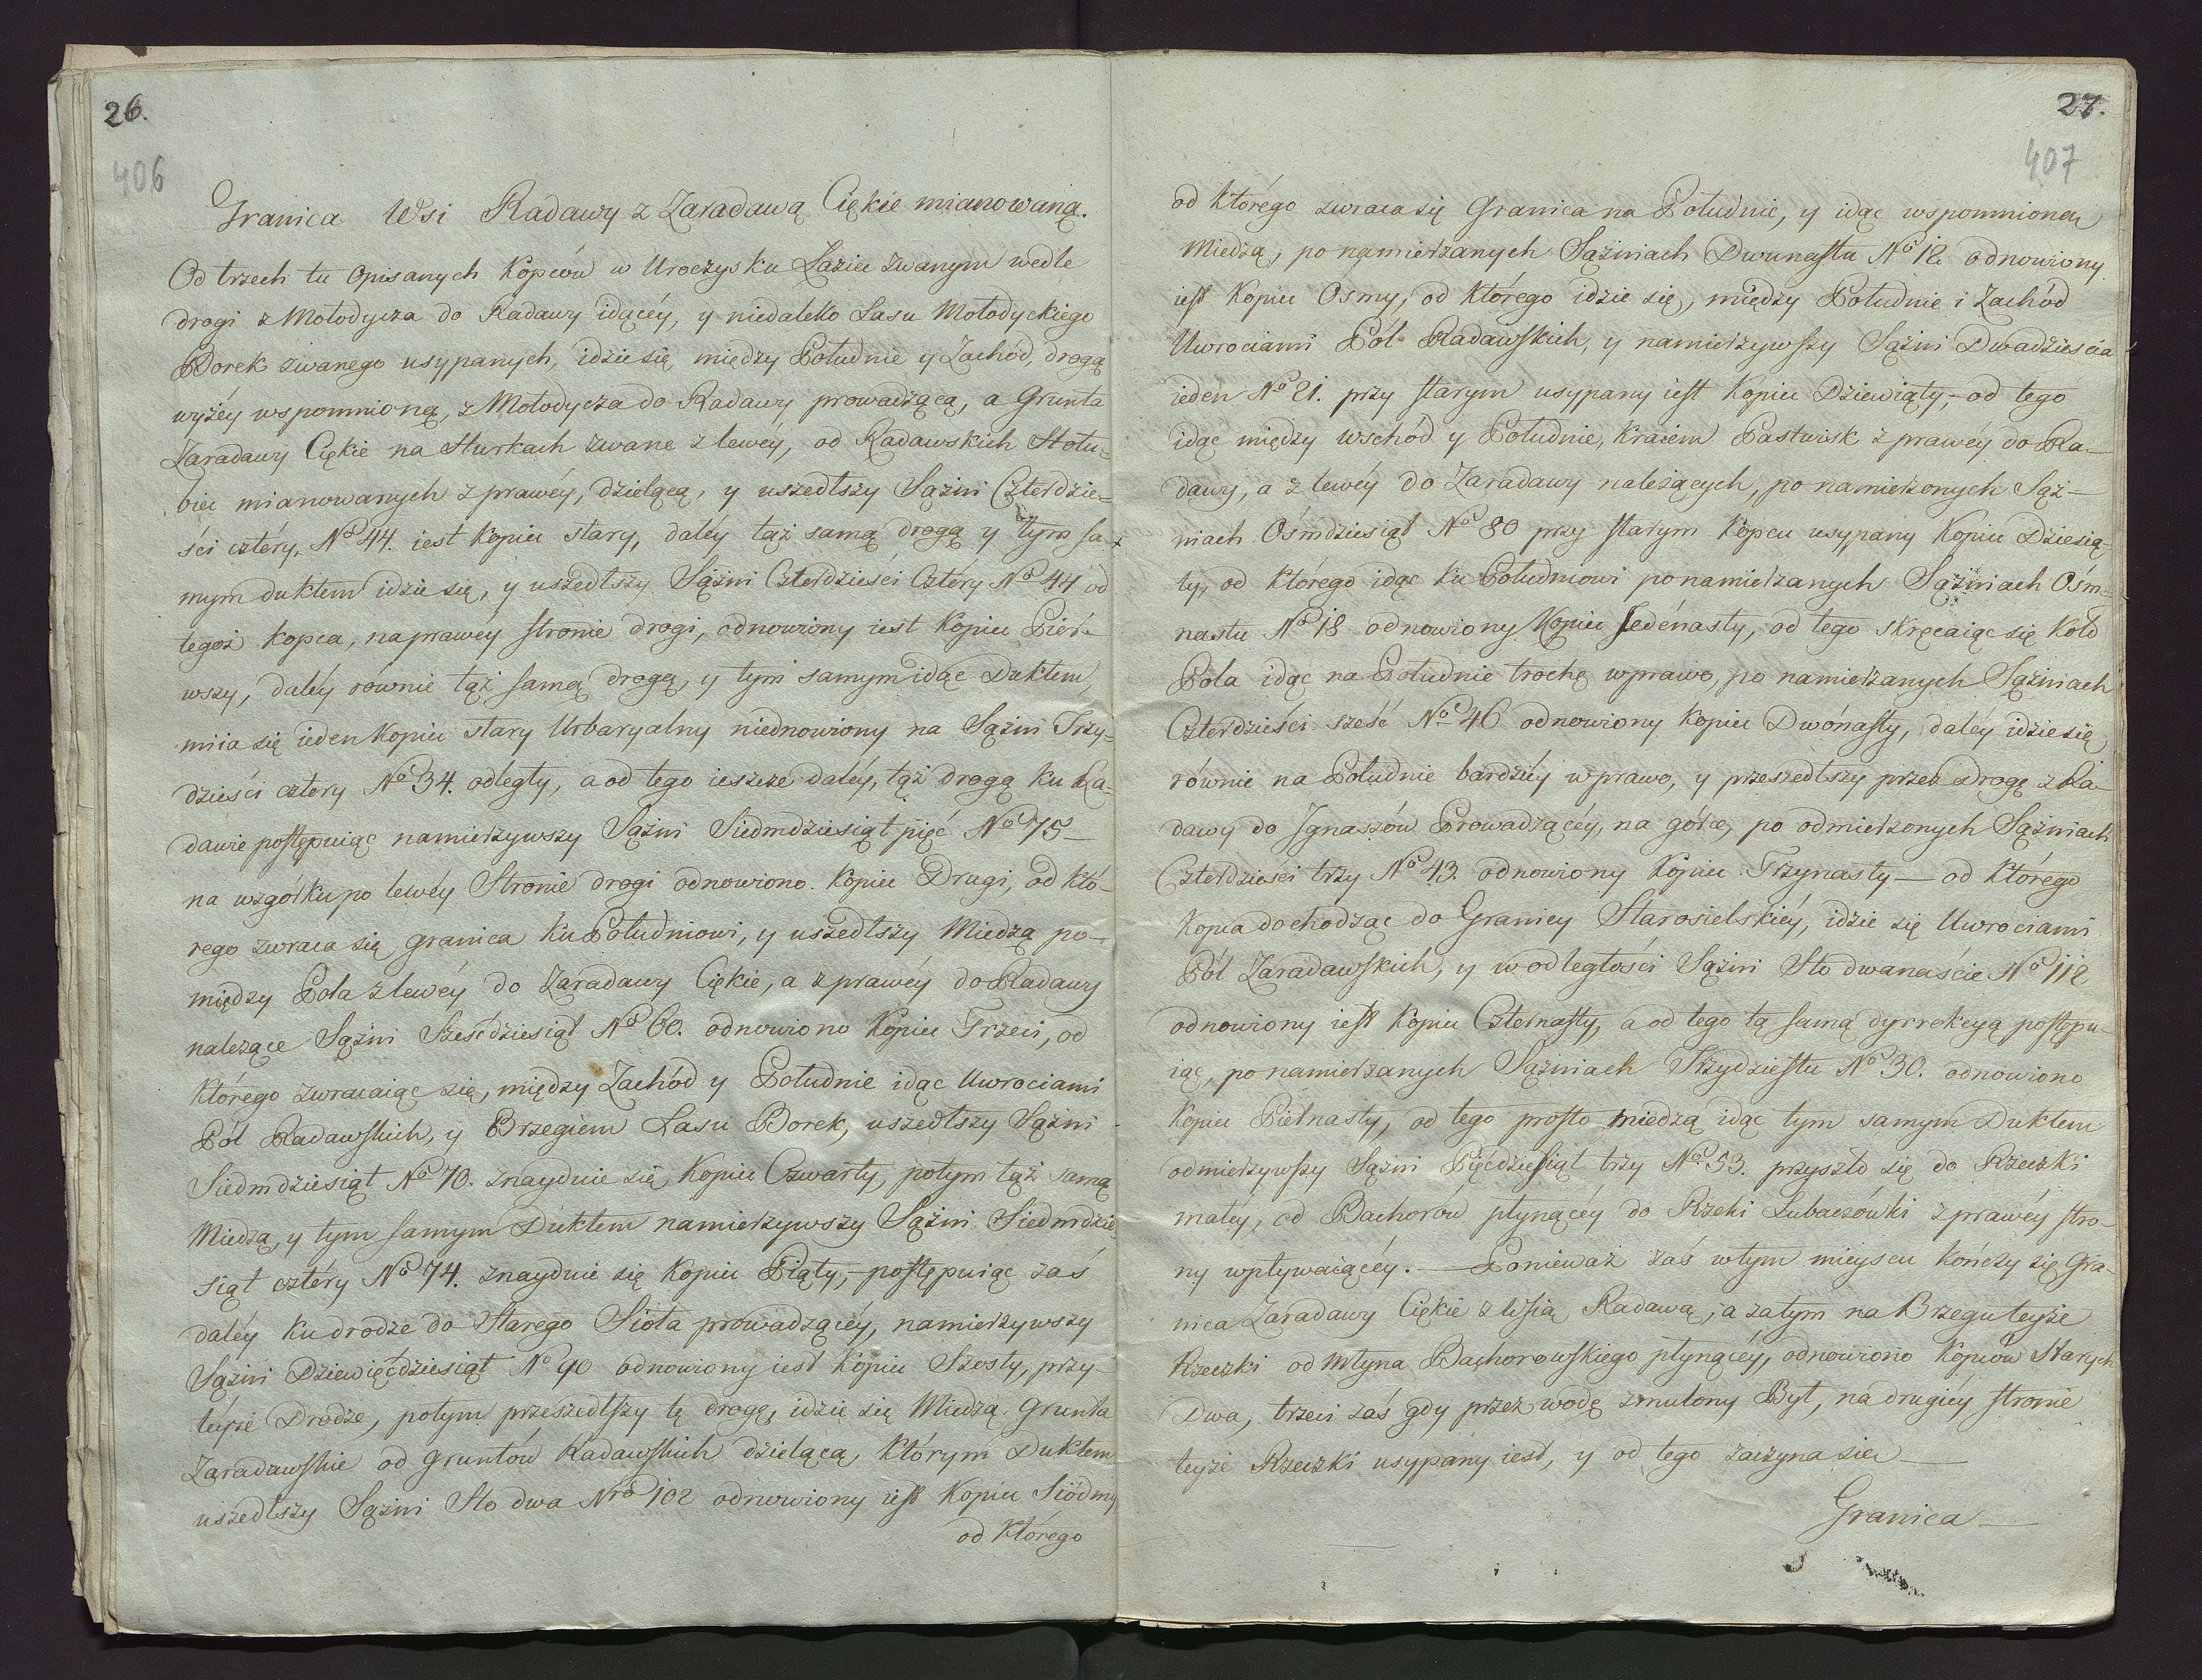 26.
406
Granica Wsi Radawy z Zaradawą Ciękie mianowaną.
Od trzech tu opisanych Kopców w Uroczysku Łaziec zwanym wedle
drogi z Mołodycza do Radawy idącéy, y niedaleko Lasu Mołodyckiego
Borek zwanego usypanych, idzie się między Południe y Zachód, drogą
wyżéy wspomnioną, z Mołodycza do Radawy prowadzącą, a Grunta
Zaradawy Ciękie na Hurkach zwane z lewéy, od Radawskich Hołu-
biec mianowanych z prawéy, dzielącą, y uszedłszy Sążni Czterdzie-
ści cztéry, No 44. iest Kopiec stary, daléy tąż samą drogą y tym sa-
mym duktem idzie się, y uszedłszy Sążni Czterdzieści Cztéry No 44 od
tegoż kopca, na prawéy stronie drogi, odnowiony iest Kopiec Pier-
wszy, daléy równie tąż samą drogą, y tym samym idąc Duktem,
miia się ieden Kopiec stary Urbaryalny niednowiony na Sążni Trzy-
dzieści cztery No 34. odległy, a od tego ieszcze daléy, tąż drogą ku Ra-
dawie postępuiąc namierzywszy Sążni Siedmdziesiąt pięć No 75 –
na wzgórku po lewéy Stronie drogi odnowiono Kopiec Drugi, od któ-
rego zwraca się granica ku Południowi, y uszedłszy Miedzą po-
między Pola z lewéy do Zaradawy Ciękie, a z prawéy do Radawy
należące Sążni Sześćdziesiąt No 60. odnowiono Kopiec Trzeci, od
którego zwracaiąc się, między Zachód y Południe idąc Uwrociami
Pól Radawskich, y Brzegiem Lasu Borek, uszedłszy Sążni
Siedmdziesiąt No 70. znayduie się Kopiec Czwarty, potym tąż samą
Miedzą, y tym samym Duktem namierzywszy Sążni Siedmdzie-
siąt cztéry No 74. znayduie się Kopiec Piąty, – postępuiąc zaś
daléy ku drodze do Starego Sioła prowadzącéy, namierzywszy
Sążni Dziewięćdziesiąt No 90 odnowiony iest Kopiec Szosty, przy
téyże Drodze, potym przeszedłszy tę drogę, idzie się Miedzą Grunta
Zaradawskie od gruntów Radawskich dzielącą, którym Duktem
uszedłszy Sążni Sto dwa Nro 102 odnowiony iest Kopiec Siódmy
od którego
27.
407
od którego zwraca się Granica na Południe, y idąc wspomnioną
Miedzą, po namierzanych Sążniach Dwunastu No 12 odnowiony
iest Kopiec Osmy, od którego idzie się, między Południe i Zachód
Uwrociami Pól Radawskich, y namierzywszy Sążni Dwadzieścia
ieden No 21. przy starym usypany iest Kopiec Dziewiąty, – od tego
idąc między wschód y Południe, kraiem Pastwisk z prawéy do Ra-
dawy, a z lewéy do Zaradawy należących, po namierzonych Sąż-
niach Ośmdziesiąt No 80 przy starym kopcu usypany Kopiec Dziesią-
ty, od którego idąc ku Południowi po namierzanych Sążniach Ośm-
nastu No 18 odnowiony Kopiec Jedénasty, od tego skręcaiąc się koło
Pola idąc na Południe trochę w prawo, po namierzanych Sążniach
Czterdzieści sześć No 46 odnowiony Kopiec Dwónasty, daléy idzie się
równie na Południe bardziéy w prawo, y przeszedłszy przez drogę z Ra-
dawy do Ignaszów Prowadzącéy, na górce, po odmierzonych Sążniach
Czterdzieści trzy No 43. odnowiony Kopiec Trzynasty — od którego
Kopca dochodząc do Granicy Starosielskiéy, idzie się Uwrociami
Pól Zaradawskich, y w odległości Sążni Sto dwanaście No 112
odnowiony iest Kopiec Czternasty, a od tego tą samą dyrrekcyą postępu-
iąc, po namierzanych Sążniach Trzydziestu No 30. odnowiono
Kopiec Piętnasty, od tego prosto miedzą idąc tym samym Duktem
odmierzywszy Sążni Pięćdziesiąt trzy No 53. przyszło się do Rzeczki
małéy, od Bachorów płynącéy do Rzeki Lubaczówki z prawéy stro-
ny wpływaiącéy. — Ponieważ zaś w tym mieyscu kończy się Gra-
nica Zaradawy Ciękie z Wsią Radawą, a zatym na Brzegu teyże
Rzeczki od Młyna Bachorowskiego płynącéy, odnowiono Kopców Starych
Dwa, trzeci zaś gdy przez wodę zmulony Był, na drugiéy stronie
teyże Rzeczki usypany iest, y od tego zaczyna się —
Granica —